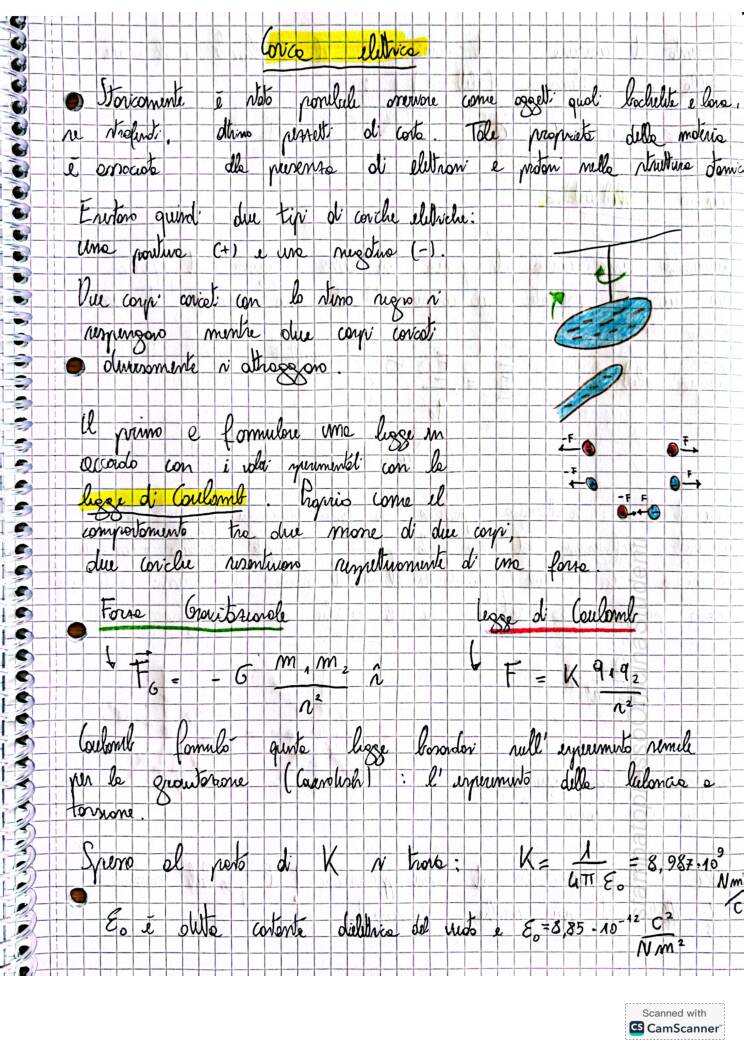 Carica elettrica
Storicamente è stato possibile osservare come oggetti quali bachelite e lana,
se strofinati, attirino pezzetti di carta. Tale proprietà della materia
è associata alla presenza di elettroni e protoni nella struttura atomic
Esistono quindi due tipi di cariche elettriche:
una positiva (+) e una negativa (-).
Due corpi caricati con lo stesso segno si
respingono mentre due corpi caricati
diversamente si attraggono.
Il primo a formulare una legge in
accordo con i dati sperimentali con la
legge di Coulomb. Proprio come il
comportamento tra due masse di due corpi,
due cariche risentivano rispettivamente di una forza.
-F F
-F F
-F F
Forza Gravitazionale
Legge di Coulomb
↓ F⃗_G = - G m₁m₂/r² r̂
↓ F = K q₁q₂/r²
Coulomb formulò questa legge basandosi sull'esperimento simile
per la gravitazione (Cavendish): l'esperimento della bilancia a
torsione.
Spesso al posto di K si trova: K = 1/4π ε₀ = 8,987·10⁹ Nm/C
ε₀ è detta costante dielettrica del vuoto e ε₀=8,85·10⁻¹² C²/Nm²
Scanned with
CS CamScanner